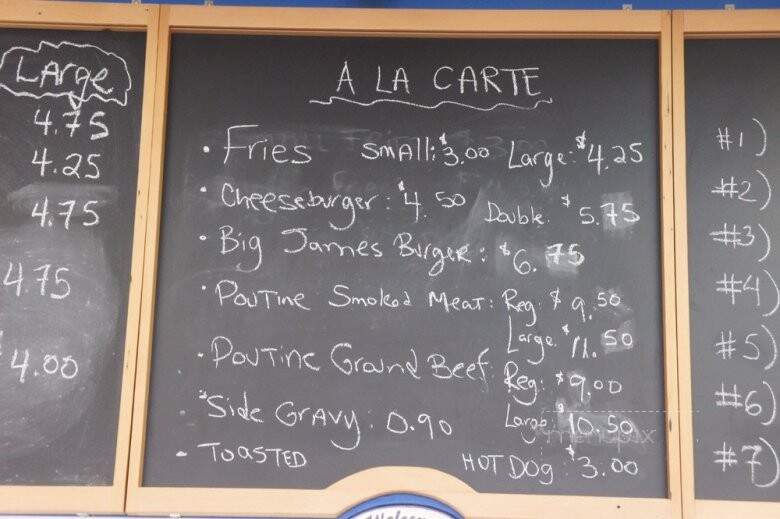 Large
4.75
4.25
4.75
4.75
4.00
A LA CARTE
• Fries Small: $3.00 Large: $4.25
• Cheeseburger: $4.50 Double $5.75
• Big James Burger: $6.75
• Poutine Smoked Meat: Reg $9.50
Large $11.50
• Poutine Ground Beef Reg: $9.00
Large $10.50
• Side Gravy: 0.90
• TOASTED HOT DOG: $3.00
#1)
#2)
#3)
#4)
#5)
#6)
#7)
menupix
Welcome